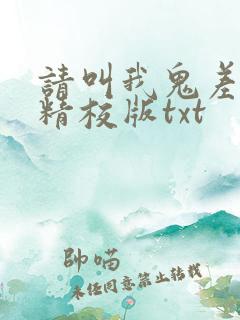 請叫我鬼差
精校版txt
帥喵
未经同意禁止转载